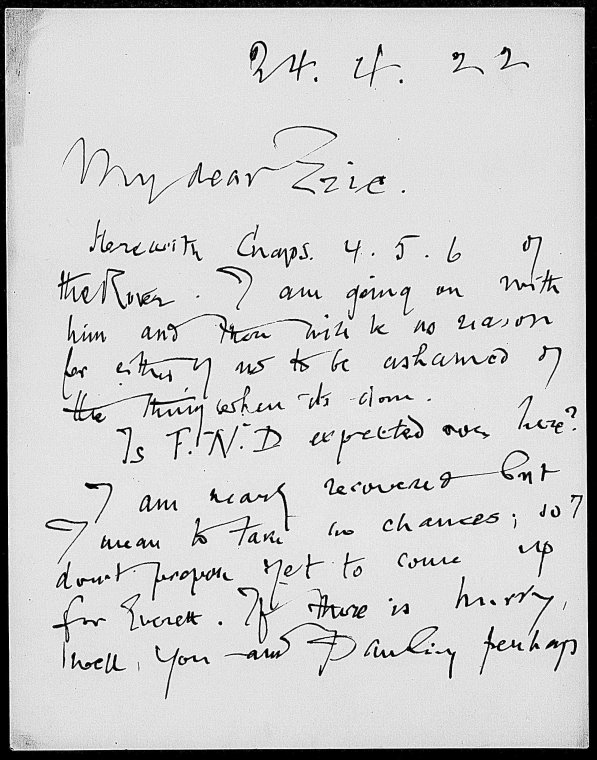 24. 4. 22
My dear Eric.
Herewith Chaps. 4. 5. 6 of
the Rover. I am going on with
him and there will be no reason
for either of us to be ashamed of
the thing when its done.
Is F. N. D expected over here?
I am nearly recovered but
I mean to take no chances; so I
don't propose yet to come up
for Everett. If there is hurry,
well, you and Pawling perhaps